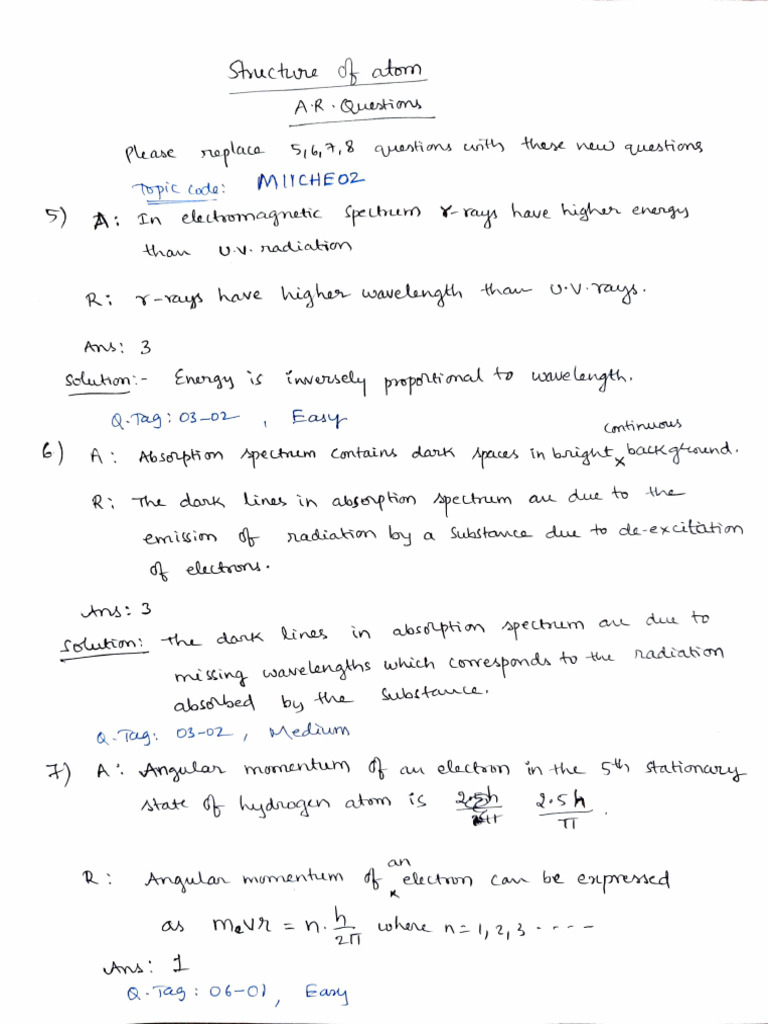 Structure of atom
A.R. Questions
Please replace 5,6,7,8 questions with these new questions
Topic code: M11CHE02
5) A: In electromagnetic spectrum γ-rays have higher energy
than U.V. radiation
R: γ-rays have higher wavelength than U.V. rays.
Ans: 3
Solution:- Energy is inversely proportional to wavelength.
Q.Tag: 03-02, Easy
continuous
6) A: Absorption spectrum contains dark spaces in bright × background.
R: The dark lines in absorption spectrum are due to the
emission of radiation by a substance due to de-excitation
of electrons.
Ans: 3
Solution: The dark lines in absorption spectrum are due to
missing wavelengths which corresponds to the radiation
absorbed by the substance.
Q.Tag: 03-02, Medium
7) A: Angular momentum of an electron in the 5th stationary
state of hydrogen atom is 2.5h/π.
an
R: Angular momentum of × electron can be expressed
as mₑvr = n.h/2π where n=1,2,3-----
Ans: 1
Q.Tag: 06-01, Easy